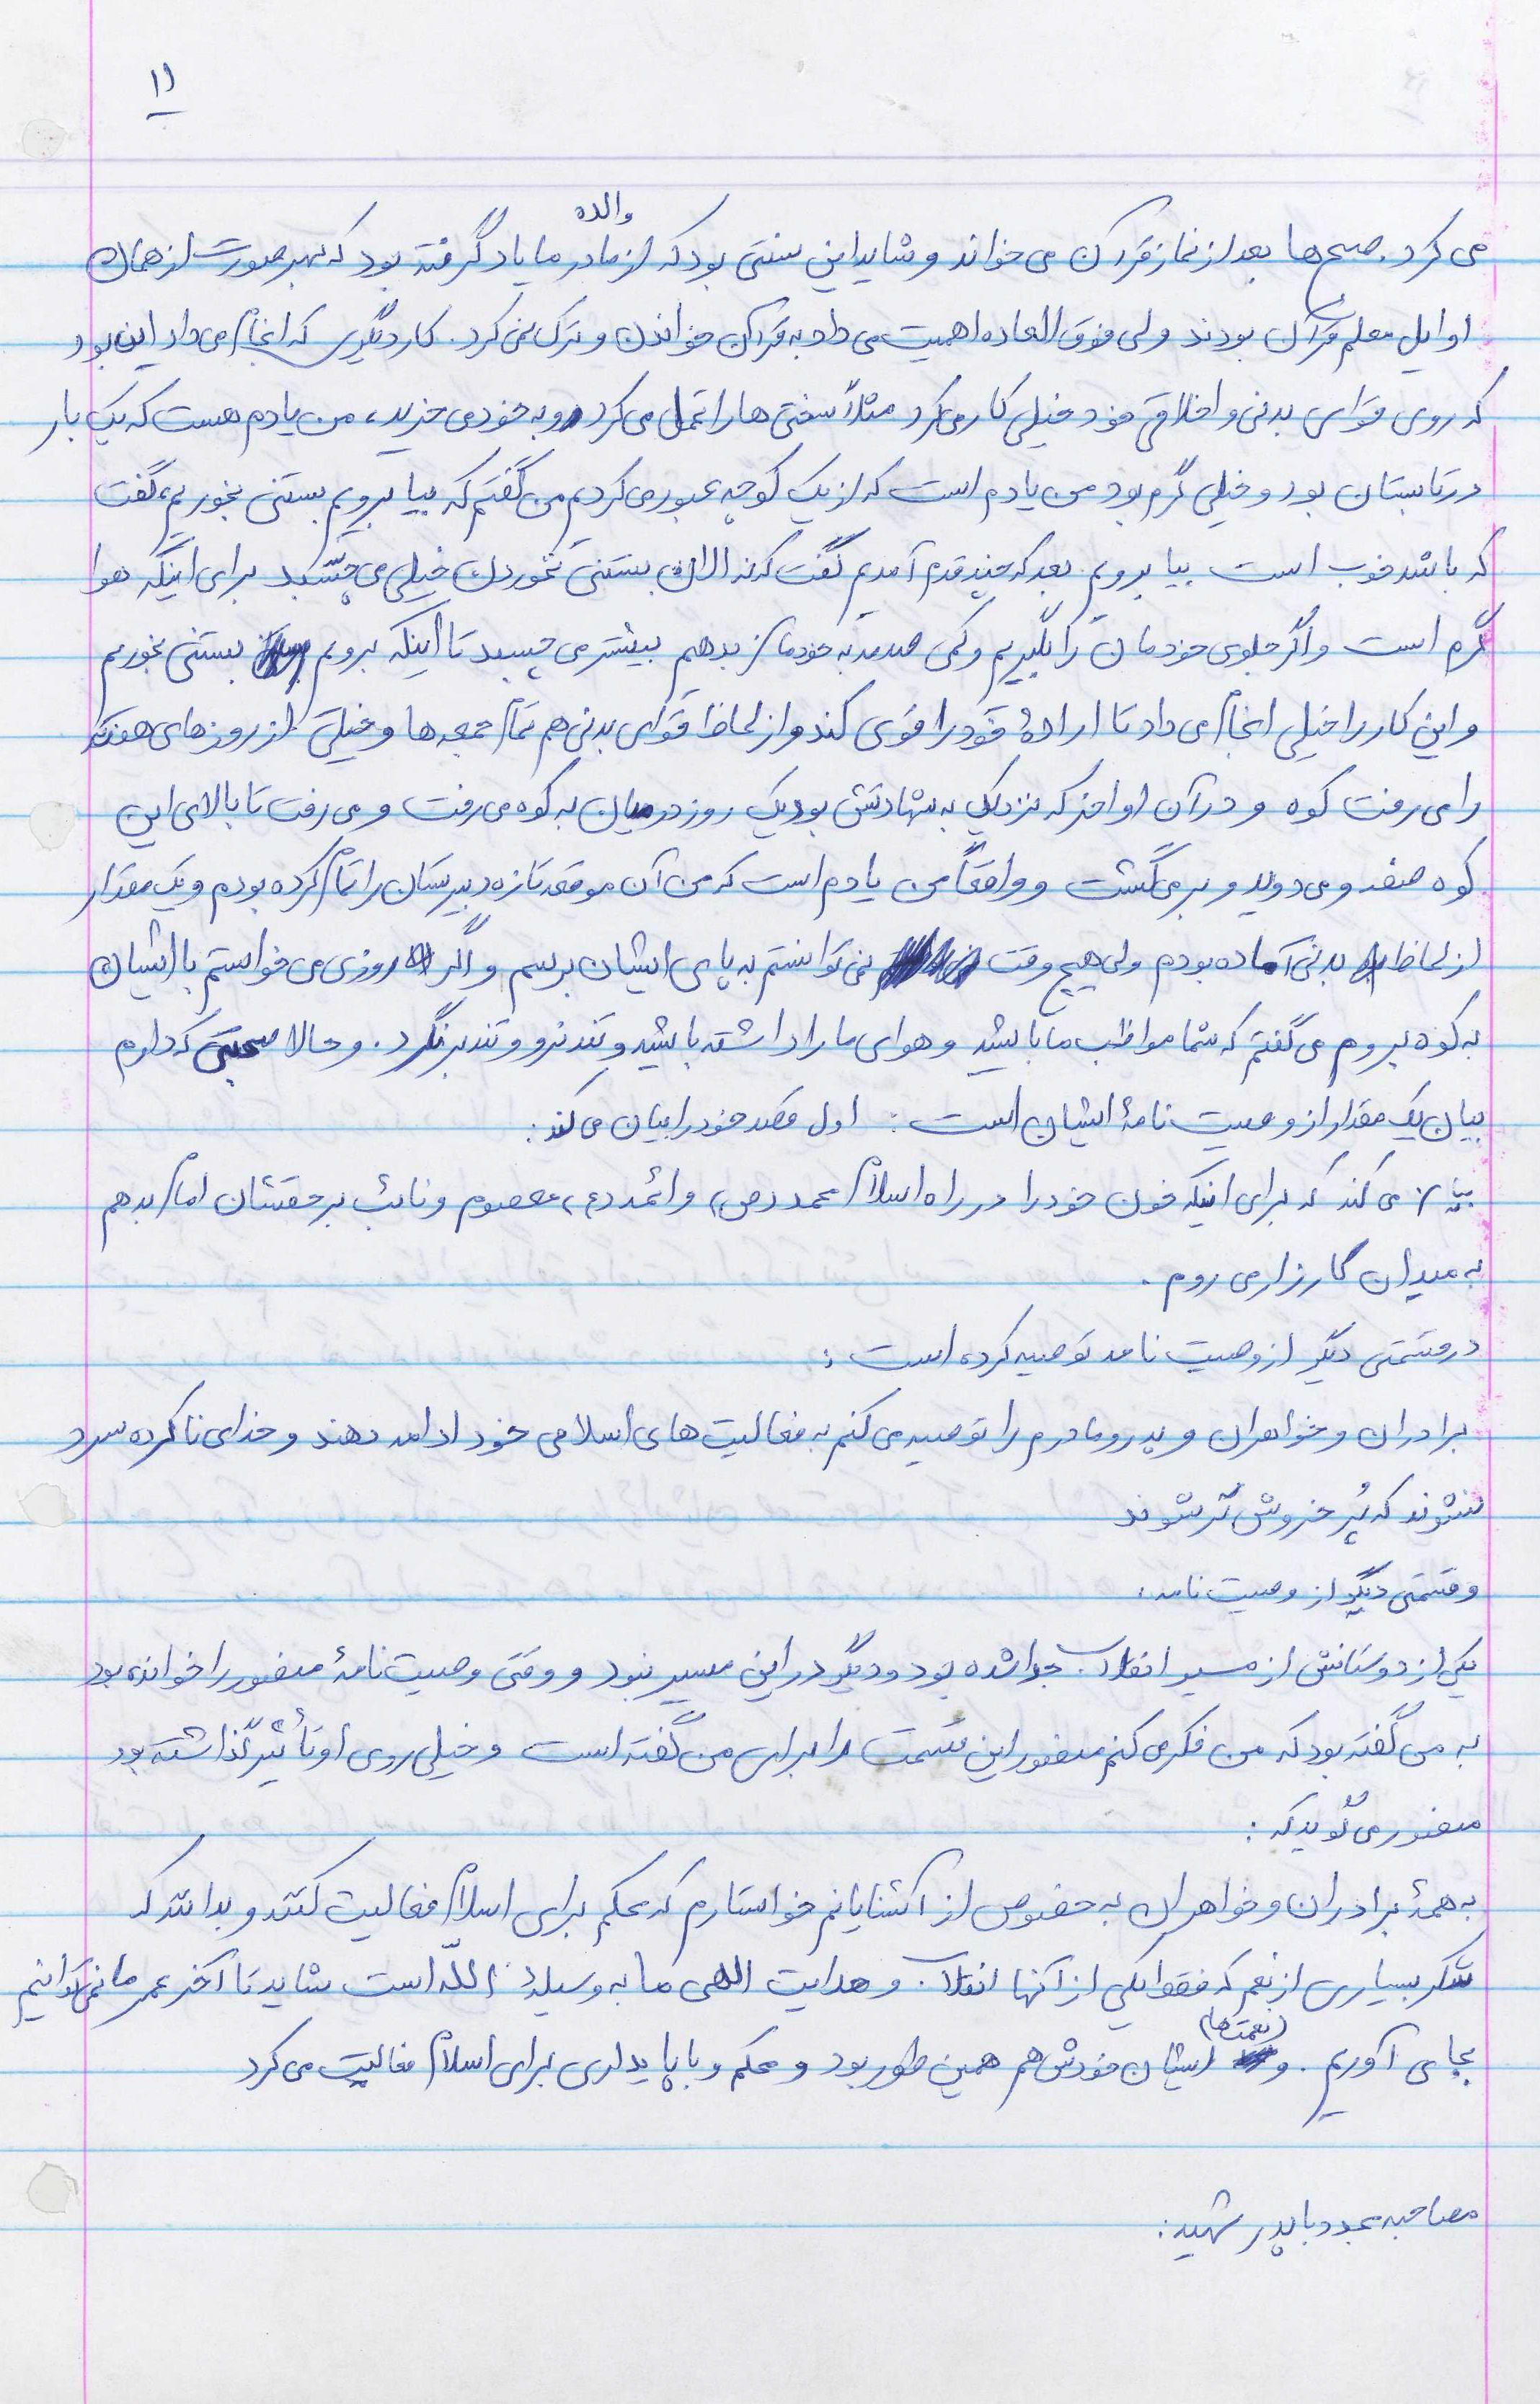 ۱۱
والده
می کرد. صبح ها بعد از نماز قرآن می خواند و شاید این سنتی بود که از مادر ما یاد گرفته بود که بهر صورت از همان
اوایل معلم قرآن بودند ولی فوق العاده اهمیت می داد به قرآن خواندن و ترک نمی کرد. کار دیگری که انجام می داد این بود
که روی قوای بدنی و اخلاقی خود خیلی کار می کرد مثلاً سختی ها را تحمل می کرد و به خود می خرید، من یادم هست که یک بار
در تابستان بود و خیلی گرم بود من یادم است که از یک کوچه عبور می کردیم من گفتم که بیا برویم بستنی بخوریم، گفت
که باشد خوب است بیا برویم بعد که چند قدم آمدیم گفت که نه الان بستنی نخوردن خیلی می چسبد برای اینکه هوا
گرم است و اگر جلوی خودمان را بگیریم و کمی صدمه به خودمان بدهیم بیشتر می چسبد تا اینکه برویم بستنی بخوریم
و این کار را خیلی انجام می داد تا ارادهٔ خود را قوی کند و از لحاظ قوای بدنی هم تمام جمعه ها و خیلی از روزهای هفته
را می رفت کوه و در آن اواخر که نزدیک به شهادتش بود یک روز در میان به کوه می رفت و می رفت تا بالای این
کوه صفه و می دوید و بر می گشت و واقعاً من یادم است که من آن موقع تازه دبیرستان را تمام کرده بودم و یک مقدار
از لحاظ بدنی آماده بودم ولی هیچ وقت نمی توانستم به پای ایشان برسم و اگر روزی می خواستم با ایشان
به کوه بروم می گفتم که شما مواظب ما باشید و هوای ما را داشته باشید و تند نرو و تند برنگرد. و حالا صحبتی که دارم
بیان یک مقدار از وصیت نامهٔ ایشان است: اول قصد خود را بیان می کند:
می کند که برای اینکه خون خود را در راه اسلام محمد (ص) و ائمه (ع) معصوم و نائب بر حقشان امام بدهم
به میدان کارزار می روم.
در قسمتی دیگر از وصیت نامه توصیه کرده است:
برادران و خواهران و پدر و مادرم را توصیه می کنم به فعالیت های اسلامی خود ادامه دهند و خدای ناکرده سرد
نشوند که پُر خروش تر شوند
و قسمتی دیگر از وصیت نامه:
یکی از دوستانش از مسیر انقلاب جدا شده بود و دیگر در این مسیر نبود و وقتی وصیت نامهٔ منصور را خوانده بود
به من گفته بود که من فکر می کنم منصور این قسمت را برای من گفته است و خیلی روی او تأثیر گذاشته بود
منصور می گوید که:
به همهٔ برادران و خواهران به خصوص از آشنایانم خواستارم که محکم برای اسلام فعالیت کنند و بدانند که
شکر بسیاری از نعم که فقط یکی از آنها انقلاب و هدایت الهی ما به وسیلهٔ الله است شاید تا آخر عمر ما نمی توانیم
(نعمتها)
بجای آوریم. و ایشان خودش هم همین طور بود و محکم و با پایداری برای اسلام فعالیت می کرد
مصاحبه مجدد با پدر شهید: